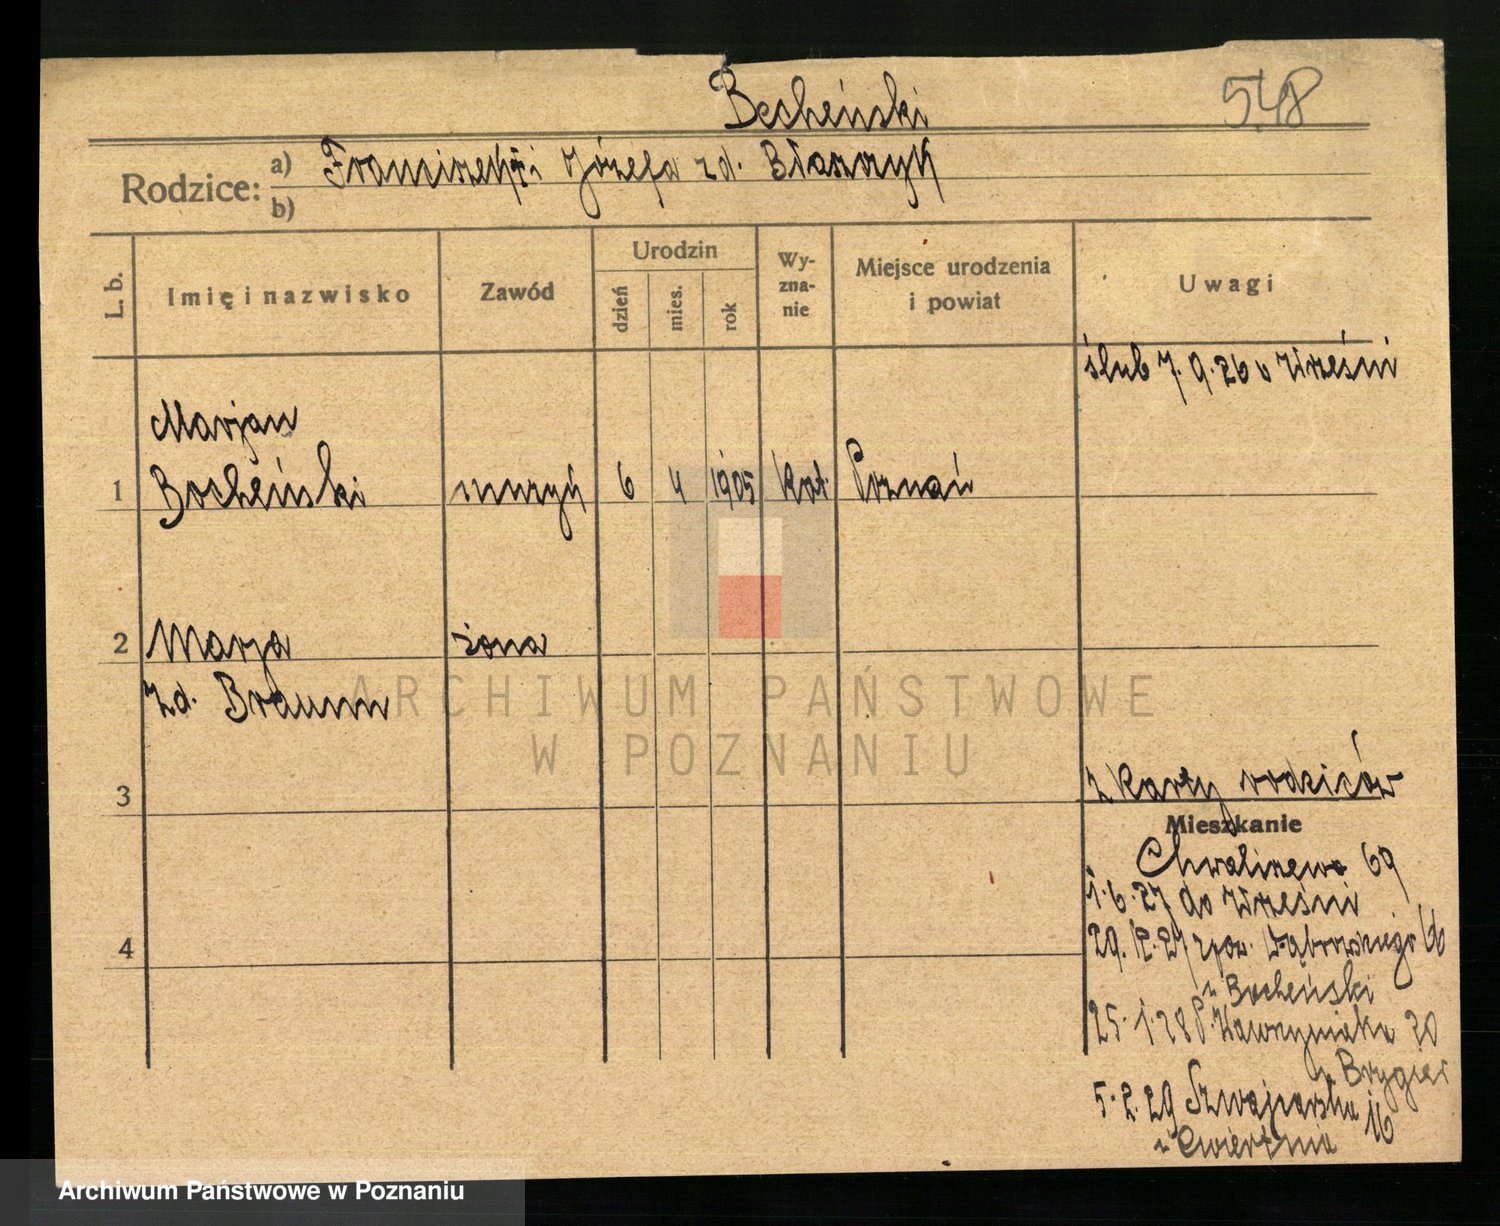 Bocheński 548
Rodzice: a) Franciszek i Józefa zd. Błaszczyk
b)
L. b. Imię i nazwisko Zawód Urodzin dzień mies. rok Wyznanie Miejsce urodzenia i powiat Uwagi
ślub 7.9.26 w Wrześni
Marjan
1 Bocheński 6 4 1905 Kat. Poznań
2 Marja żona
zd. Braunn
3 z karty rodziców
Mieszkanie
Chwaliszewo 69
1.6.27 do Wrześni
4 29.12.27 zpow. Dąbrowskiego 66
u Bocheński
25.1.28 P. Wawrzyniaka 20
u Brygier
5.2.29 Szwajcarska 16
u Ćwiertnia
ARCHIWUM PAŃSTWOWE
W POZNANIU
Archiwum Państwowe w Poznaniu